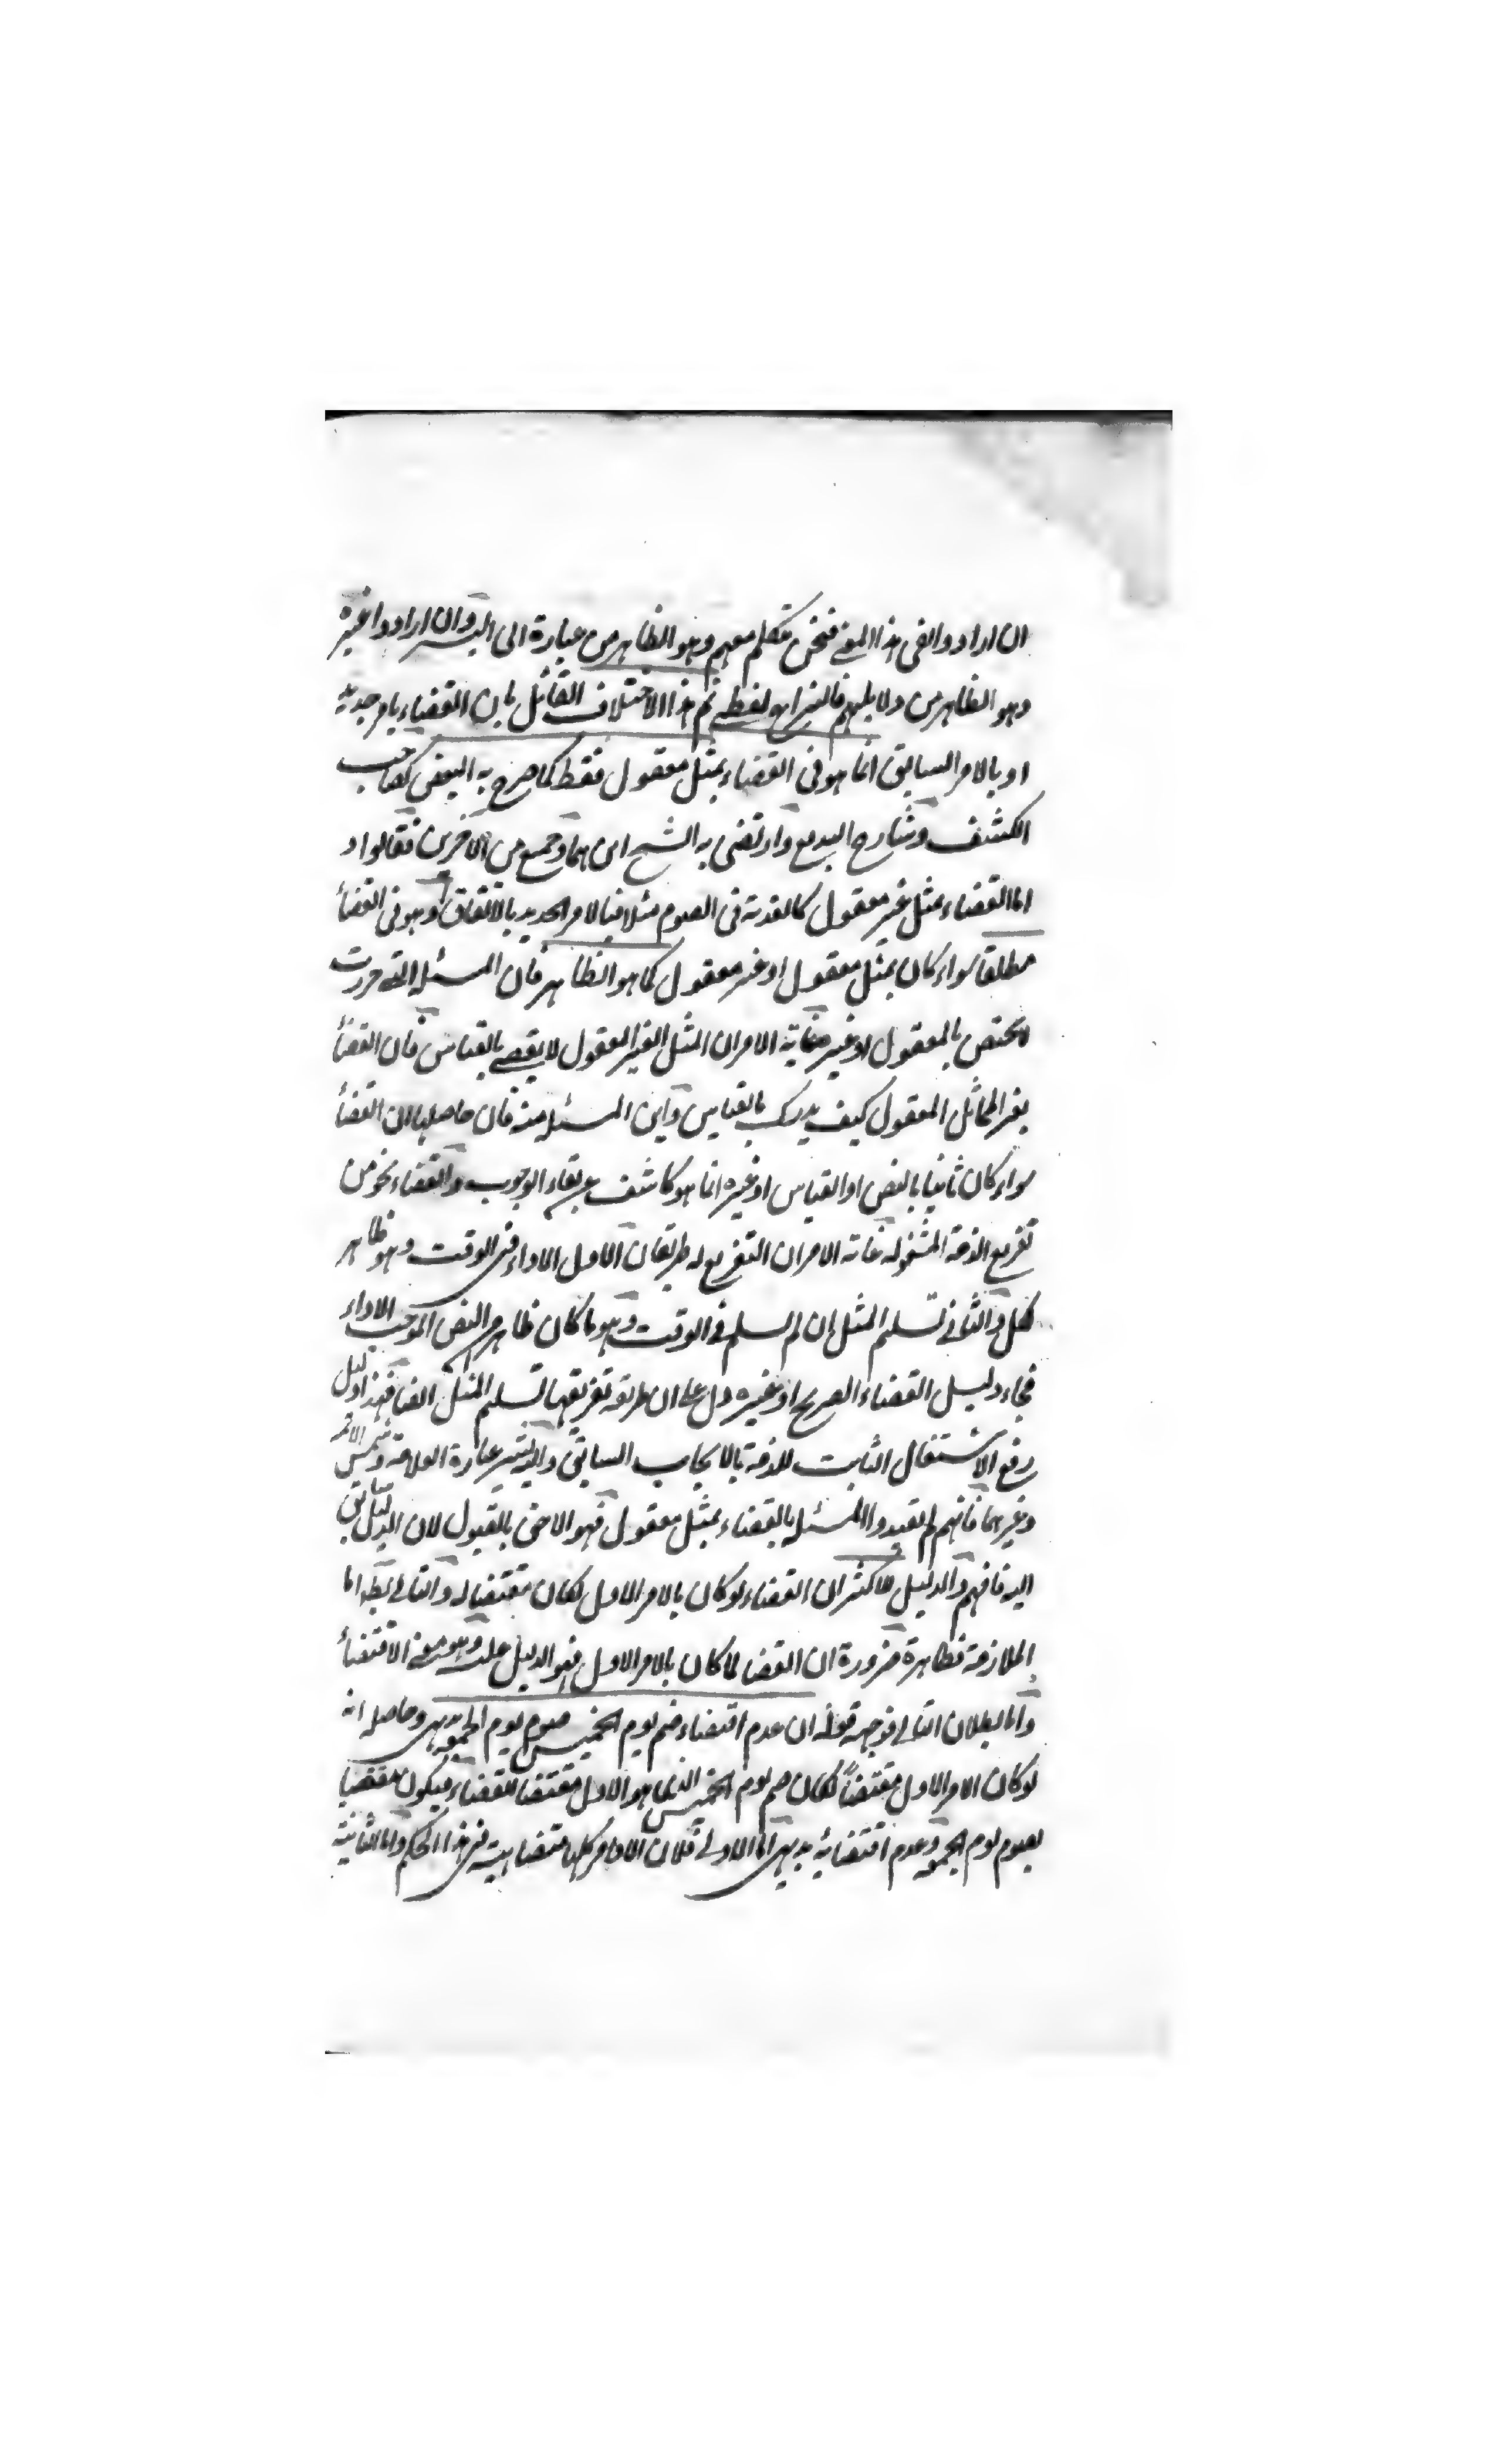 ان ارادوا نفى هذا المعنے فنحن نتكلم معهم وهو الظاهر من عبارة ابى اليسر وان ارادوا غيره
وهو الظاهر من دلايلهم فالنزاع لفظے ثم هذا الاختلاف القائل بان القضاء بامر جديد
او بالامر السابق انما هو فى القضاء بمثل معقول فقط كما صرح به البعض كصاحب
الكشف وشارح البديع وارتضى به الشيخ ابن همام وجمع من الاخرين فقالوا
اما القضاء بمثل غير معقول كالفدية فى الصوم مثلا فبالامر الجديد بالاتفاق او هو فى القضأ
مطلقا سواء كان بمثل معقول او غير معقول كما هو الظاهر فان المسئلة التے حررت
لا تختص بالمعقول او غيره غاية الامر ان المثل الغير المعقول لا يقضے بالقياس فان القضأ
بغير المماثل المعقول كيف يدرك بالقياس واين المسئلة منه فان حاصلها ان القضأ
سواء كان ثابتا بالنص او القياس او غيره انما هو كاشف عن بقاء الوجوب والقضاء نحو من
تفريع الذمة المشغولة غاية الامر ان التفريع له طريقان الاول الاداء فى الوقت وهو ظاهر
كل والثانے تسليم المثل ان لم يسلم فے الوقت وهو ما كان ظاهر من النص الموجب الاداء
فجاء دليل القضاء الصريح او غيره دل علے ان طريقة تفريقها تسليم المثل ايضا فهذا دليل
رفع الاشتغال الثابت للذمة بالايجاب السابق واليه يشير عبارة العلامة وشمس الائمة
وغيرهما فانهم لم يقيدوا المسئلة بالقضاء بمثل معقول فهو الاحق بالقبول لان الدليل سابق
اليه فافهم والدليل للاكثر ان القضاء لو كان بالامر الاول لكان مقتضيا له والتالے بط اما
الملازمة فظاهرة ضرورة ان القضا لما كان بالامر الاول فهو الدليل عليه وهو معنے الاقتضأ
واما بطلان التالے فوجهه قوله ان عدم اقتضاء صم يوم الخميس صوم يوم الجمعة بديهى وحاصله انه
لو كان الامر الاول مقتضيا لكان صم يوم الخميس الذى هو الاول مقتضيا للقضاء فيكون مقتضيا
بصوم يوم الجمعة وعدم اقتضائه بديهى اما الاولے فلان الاوامر كلها متشابهة فى هذا الحكم واما الثانية